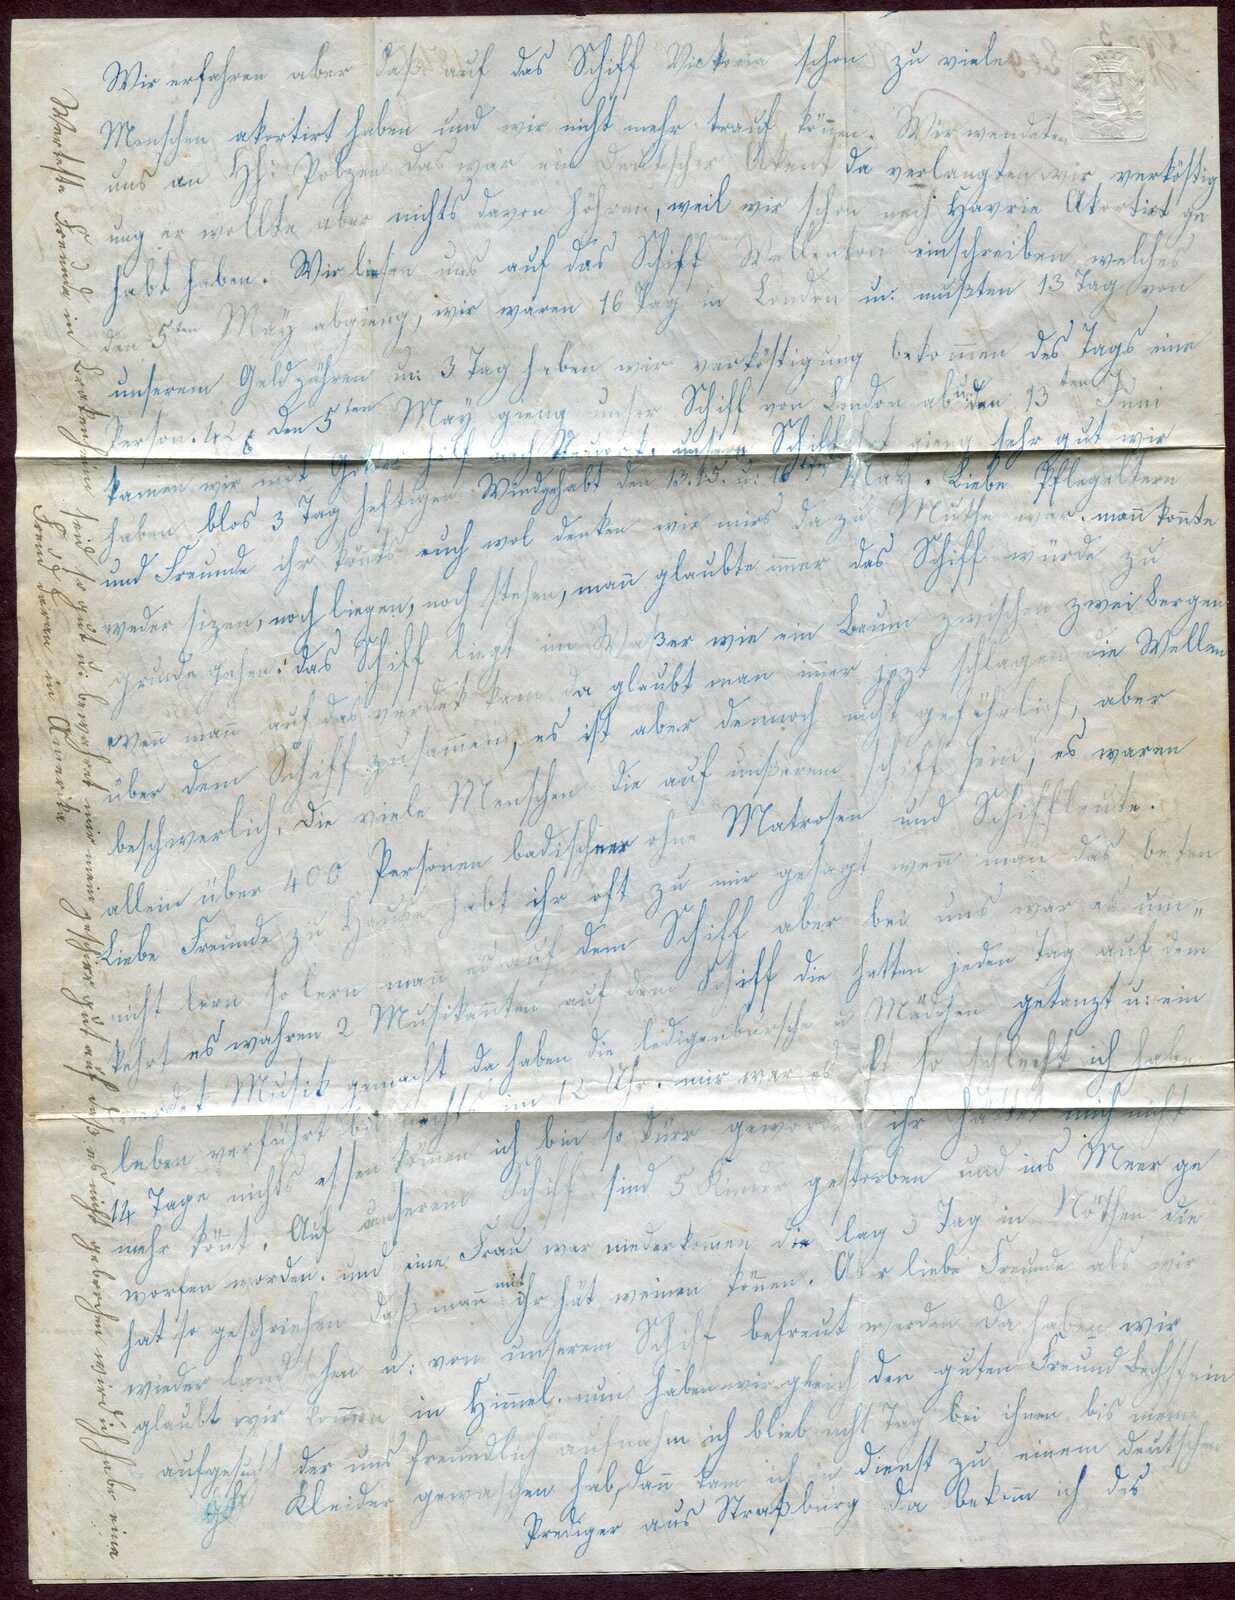 Wir erfahren aber daß auf das Schiff Vicktoria schon zu viele
Menschen akortirt haben und wir nicht mehr trauf können. Wir wendeten
uns an Hh: Polzen das war ein deutscher Akent da verlangten wir verköstig
ung er wollte aber nichts davon höhren, weil wir schon nach Havrie Akortirt ge
habt haben. Wir liesen uns auf das Schiff Wellenkton einschreiben welches
den 5ten May abgieng, wir waren 16 Tag in London u: mußten 13 Tag von
unserem Geld zähren u: 3 Tag haben wir verköstigung bekommen des Tags eine
Person 42 den 5ten May gieng unser Schiff von London ab u: den 13ten Juni
kamen wir mit Gottes hilf nach unsere Schiffahrt gieng sehr gut wir
haben blos 3 Tag heftigen Wind gehabt den 13. 15. u: 16ten May. Liebe Pflegeltern
und Freunde ihr könts euch wol denken wie mirs da zu Muthe war. mann konnte
weder sizen, noch liegen, noch stehen, mann glaubte imer das Schiff würde zu
grunde gehen: das Schiff liegt im Waßer wie ein Baum zwischen zwei Bergen
wenn mann auf das verdek kam da glaubt man immer jezt schlagen die Wellen
über dem Schiff zusammen, es ist aber dennoch nicht gefährlich, aber
beschwerlich. Die viele Menschen die auf unßerem schiff sein, es waren
allein über 400 Personen badischner ohne Matrosen und Schiffleute.
Liebe Freunde zu Hause habt ihr oft zu mir gesagt wenn man das beten
nicht lern so lern man es auf dem Schiff aber bei uns war es um-
kehrt es wahren 2 Musikannten auf dem Schiff die hatten jeden Tag auf dem
verdek Musik gemacht da haben die ledigenbursche u Mädchen getanzt u: ein
leben verführt bis nachts im 12 Uhr. mir war es oft so schlecht ich habe
14 Tage nichts essen können ich bin so dürr geworden ihr hättet mich nicht
mehr könt. Auf unserem Schiff sind 5 Kinder gestorben und ins Meer ge
worfen worden. und eine Frau war niederkomen die lag 3 Tag in Nöthen die
hat so geschriehen daß mann mit ihr hät weinen können. Aber liebe Freunde als wir
wieder land sehen u: von unserem Schiff befreut werden da haben wir
glaubt wir kommen in Himmel. nun haben wir gleich den guten Freund Bechstein
aufgesucht der uns freundlich aufnahm ich blieb acht Tag bei ihnen bis meine
Kleider gewaschen hab, dann kam ich in dienst zu einem deutschen
Prediger aus Straßburg da bekomm ich des
Wertheste Freunde in seid so gut u: bewahret mir mein geschirr gut auf daß es nicht gebrochen wird ich habe eine
Freud daran in Amerika